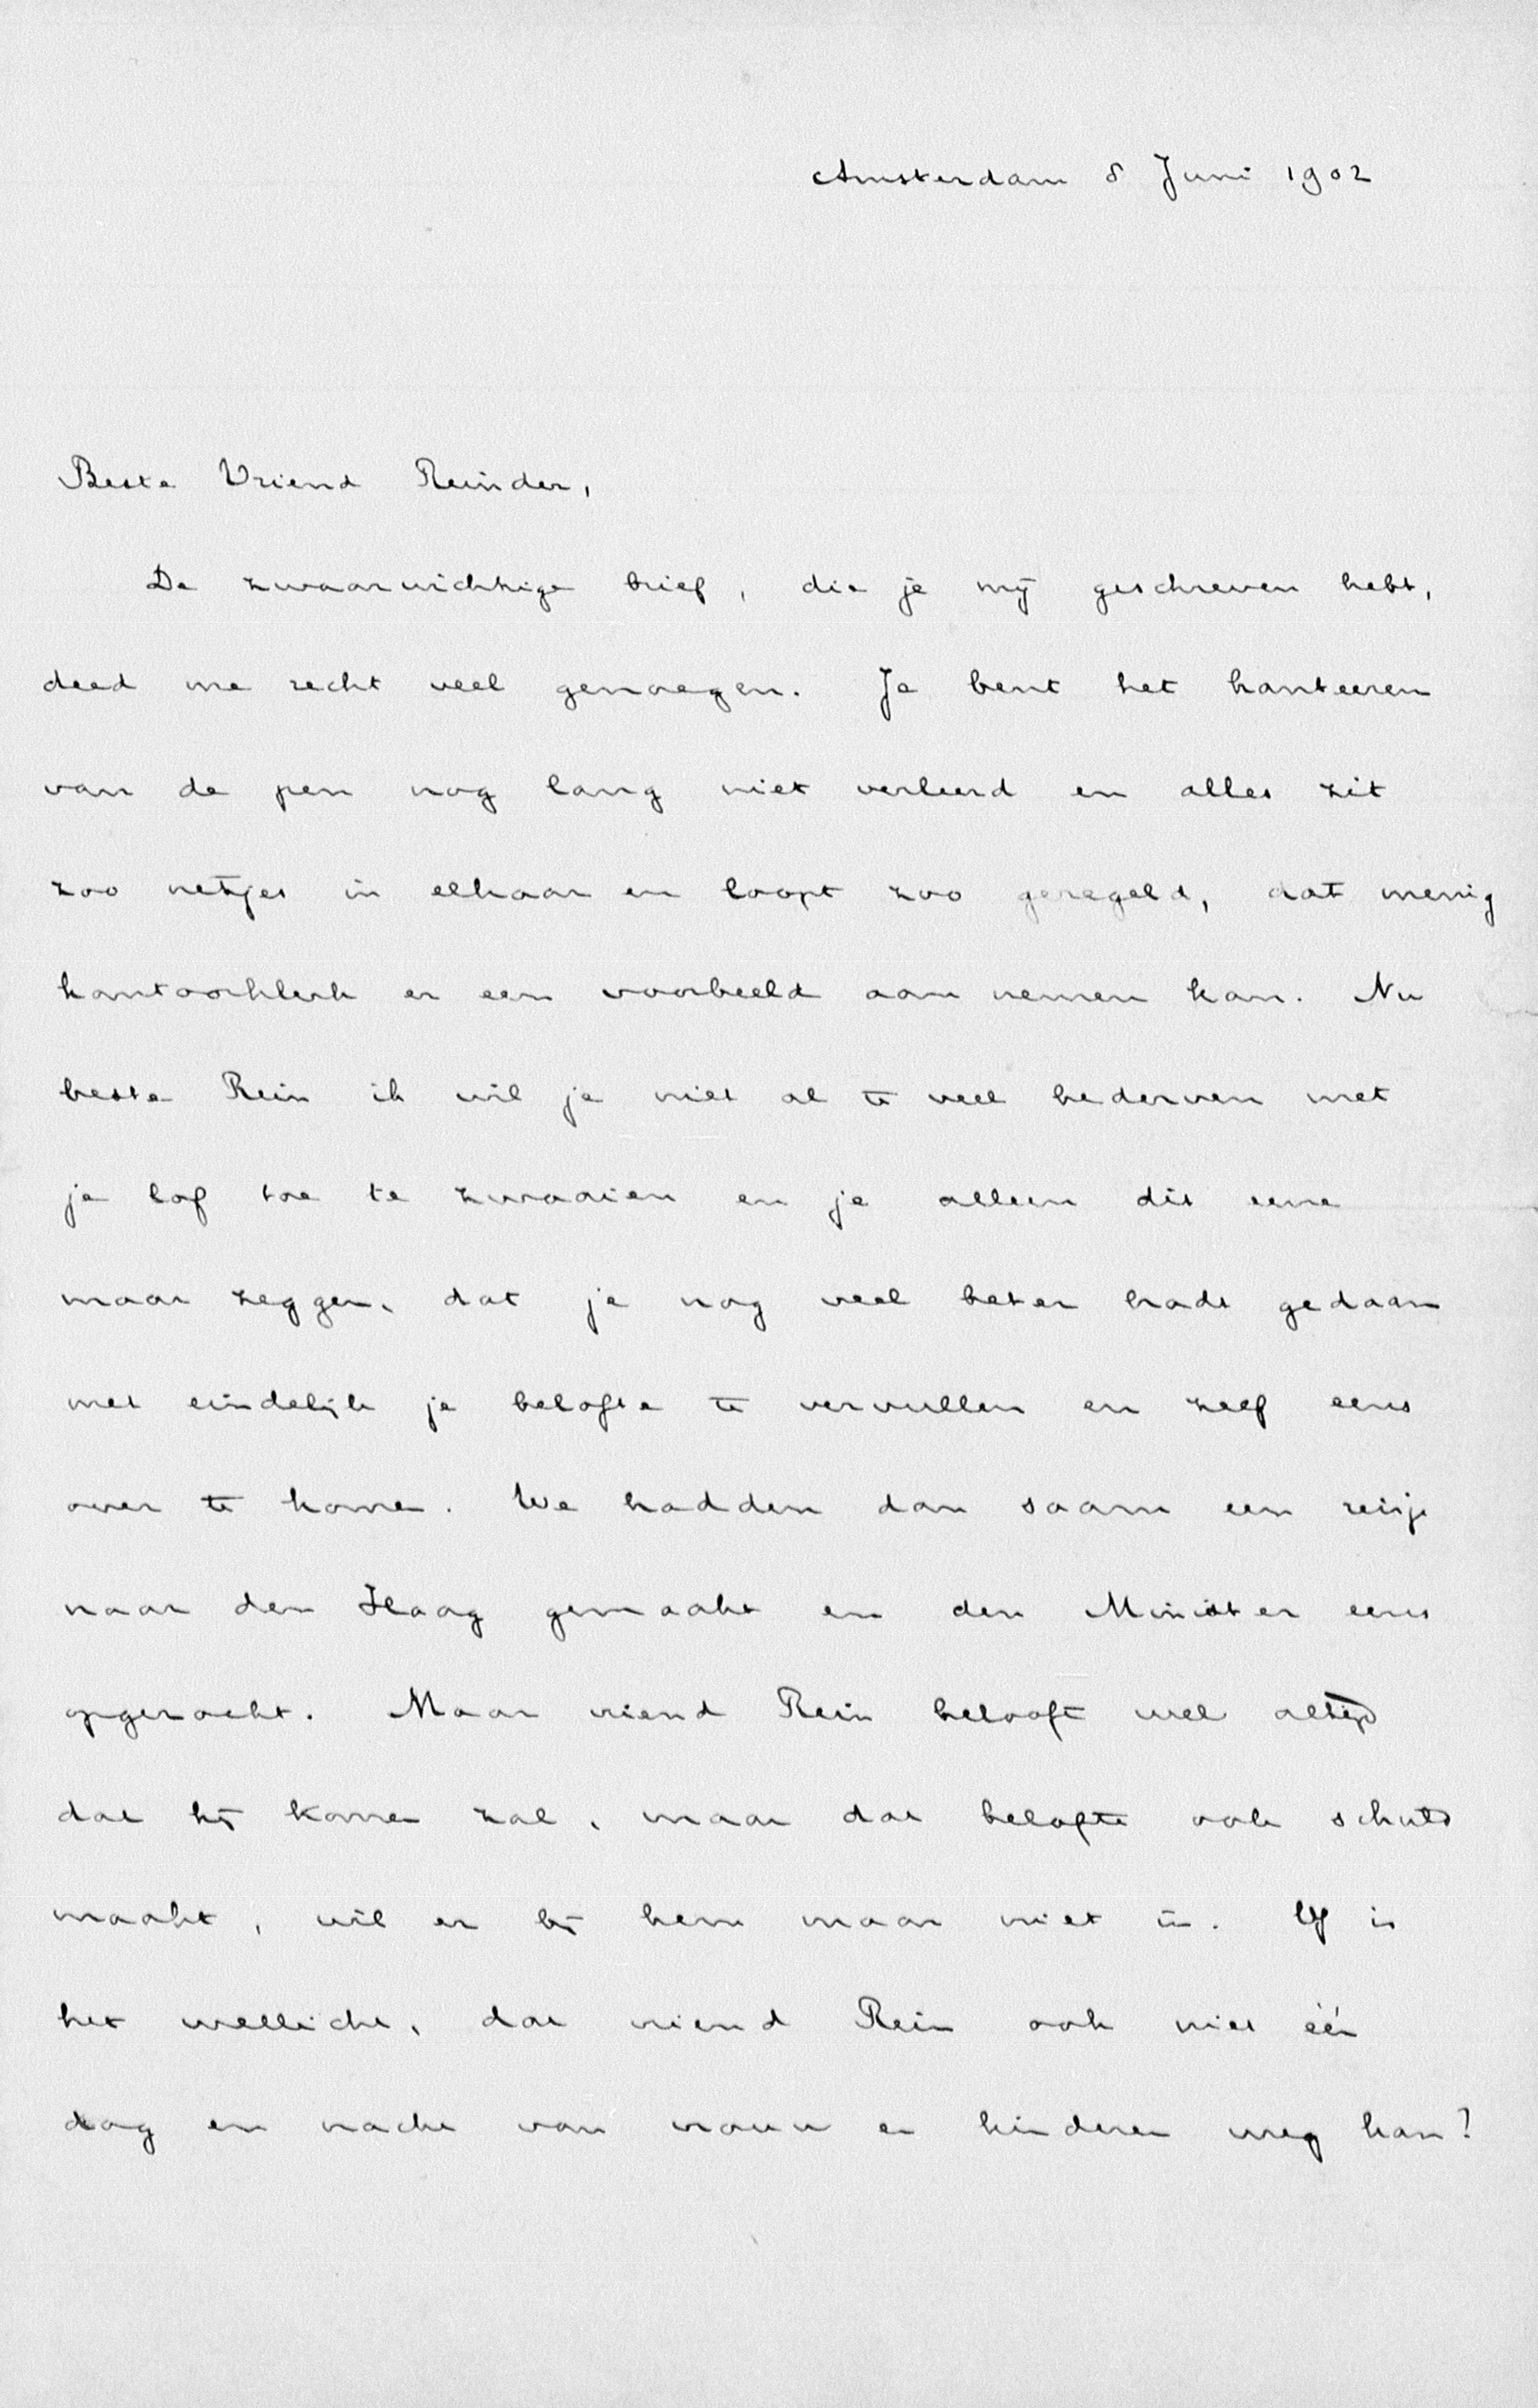 Amsterdam 8 Juni 1902
Beste Vriend Reinder,
De zwaarwichtige brief, die je mij geschreven hebt,
deed me recht veel genoegen. Je bent het hanteeren
van de pen nog lang niet verleerd en alles zit
zoo netjes in elkaar en loopt zoo geregeld, dat menig
kantoorklerk er een voorbeeld aan nemen kan. Nu
beste Rein ik wil je niet al te veel bederven met
je lof toe te zwaaien en je alleen dit eene
maar zeggen, dat je nog veel beter hadt gedaan
met eindelijk je belofte te vervullen en zelf eens
over te komen. We hadden dan saam een reisje
naar den Haag gemaakt en den Minister eens
opgezocht. Maar vriend Rein belooft wel altijd
dat hij komen zal, maar dat belofte ook schuld
maakt, wil er bij hem maar niet in. Of is
het wellicht, dat vriend Rein ook niet één
dag en nacht van vrouw en kinderen weg kan?